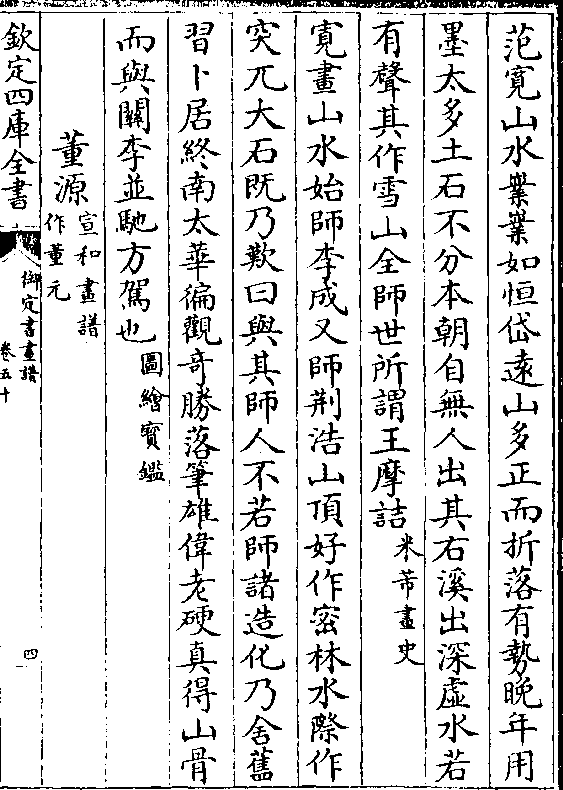 范寛山水㠓㠓如恒岱遠山多正而折落有勢晚年用
墨太多土石不分本朝自無人出其右溪出深虛水若
有聲其作雪山全師世所謂王摩詰米芾畫史
寛畫山水始師李成又師荆浩山頂好作宻林水際作
突兀大石既乃歎曰與其師人不若師諸造化乃舍舊
習卜居終南太華徧觀奇勝落筆雄偉老硬真得山骨
而與關李並馳方駕也圖繪寳鑑
董源宣和畫譜作董元
欽定四庫全書
御定書畫譜
卷五十
四